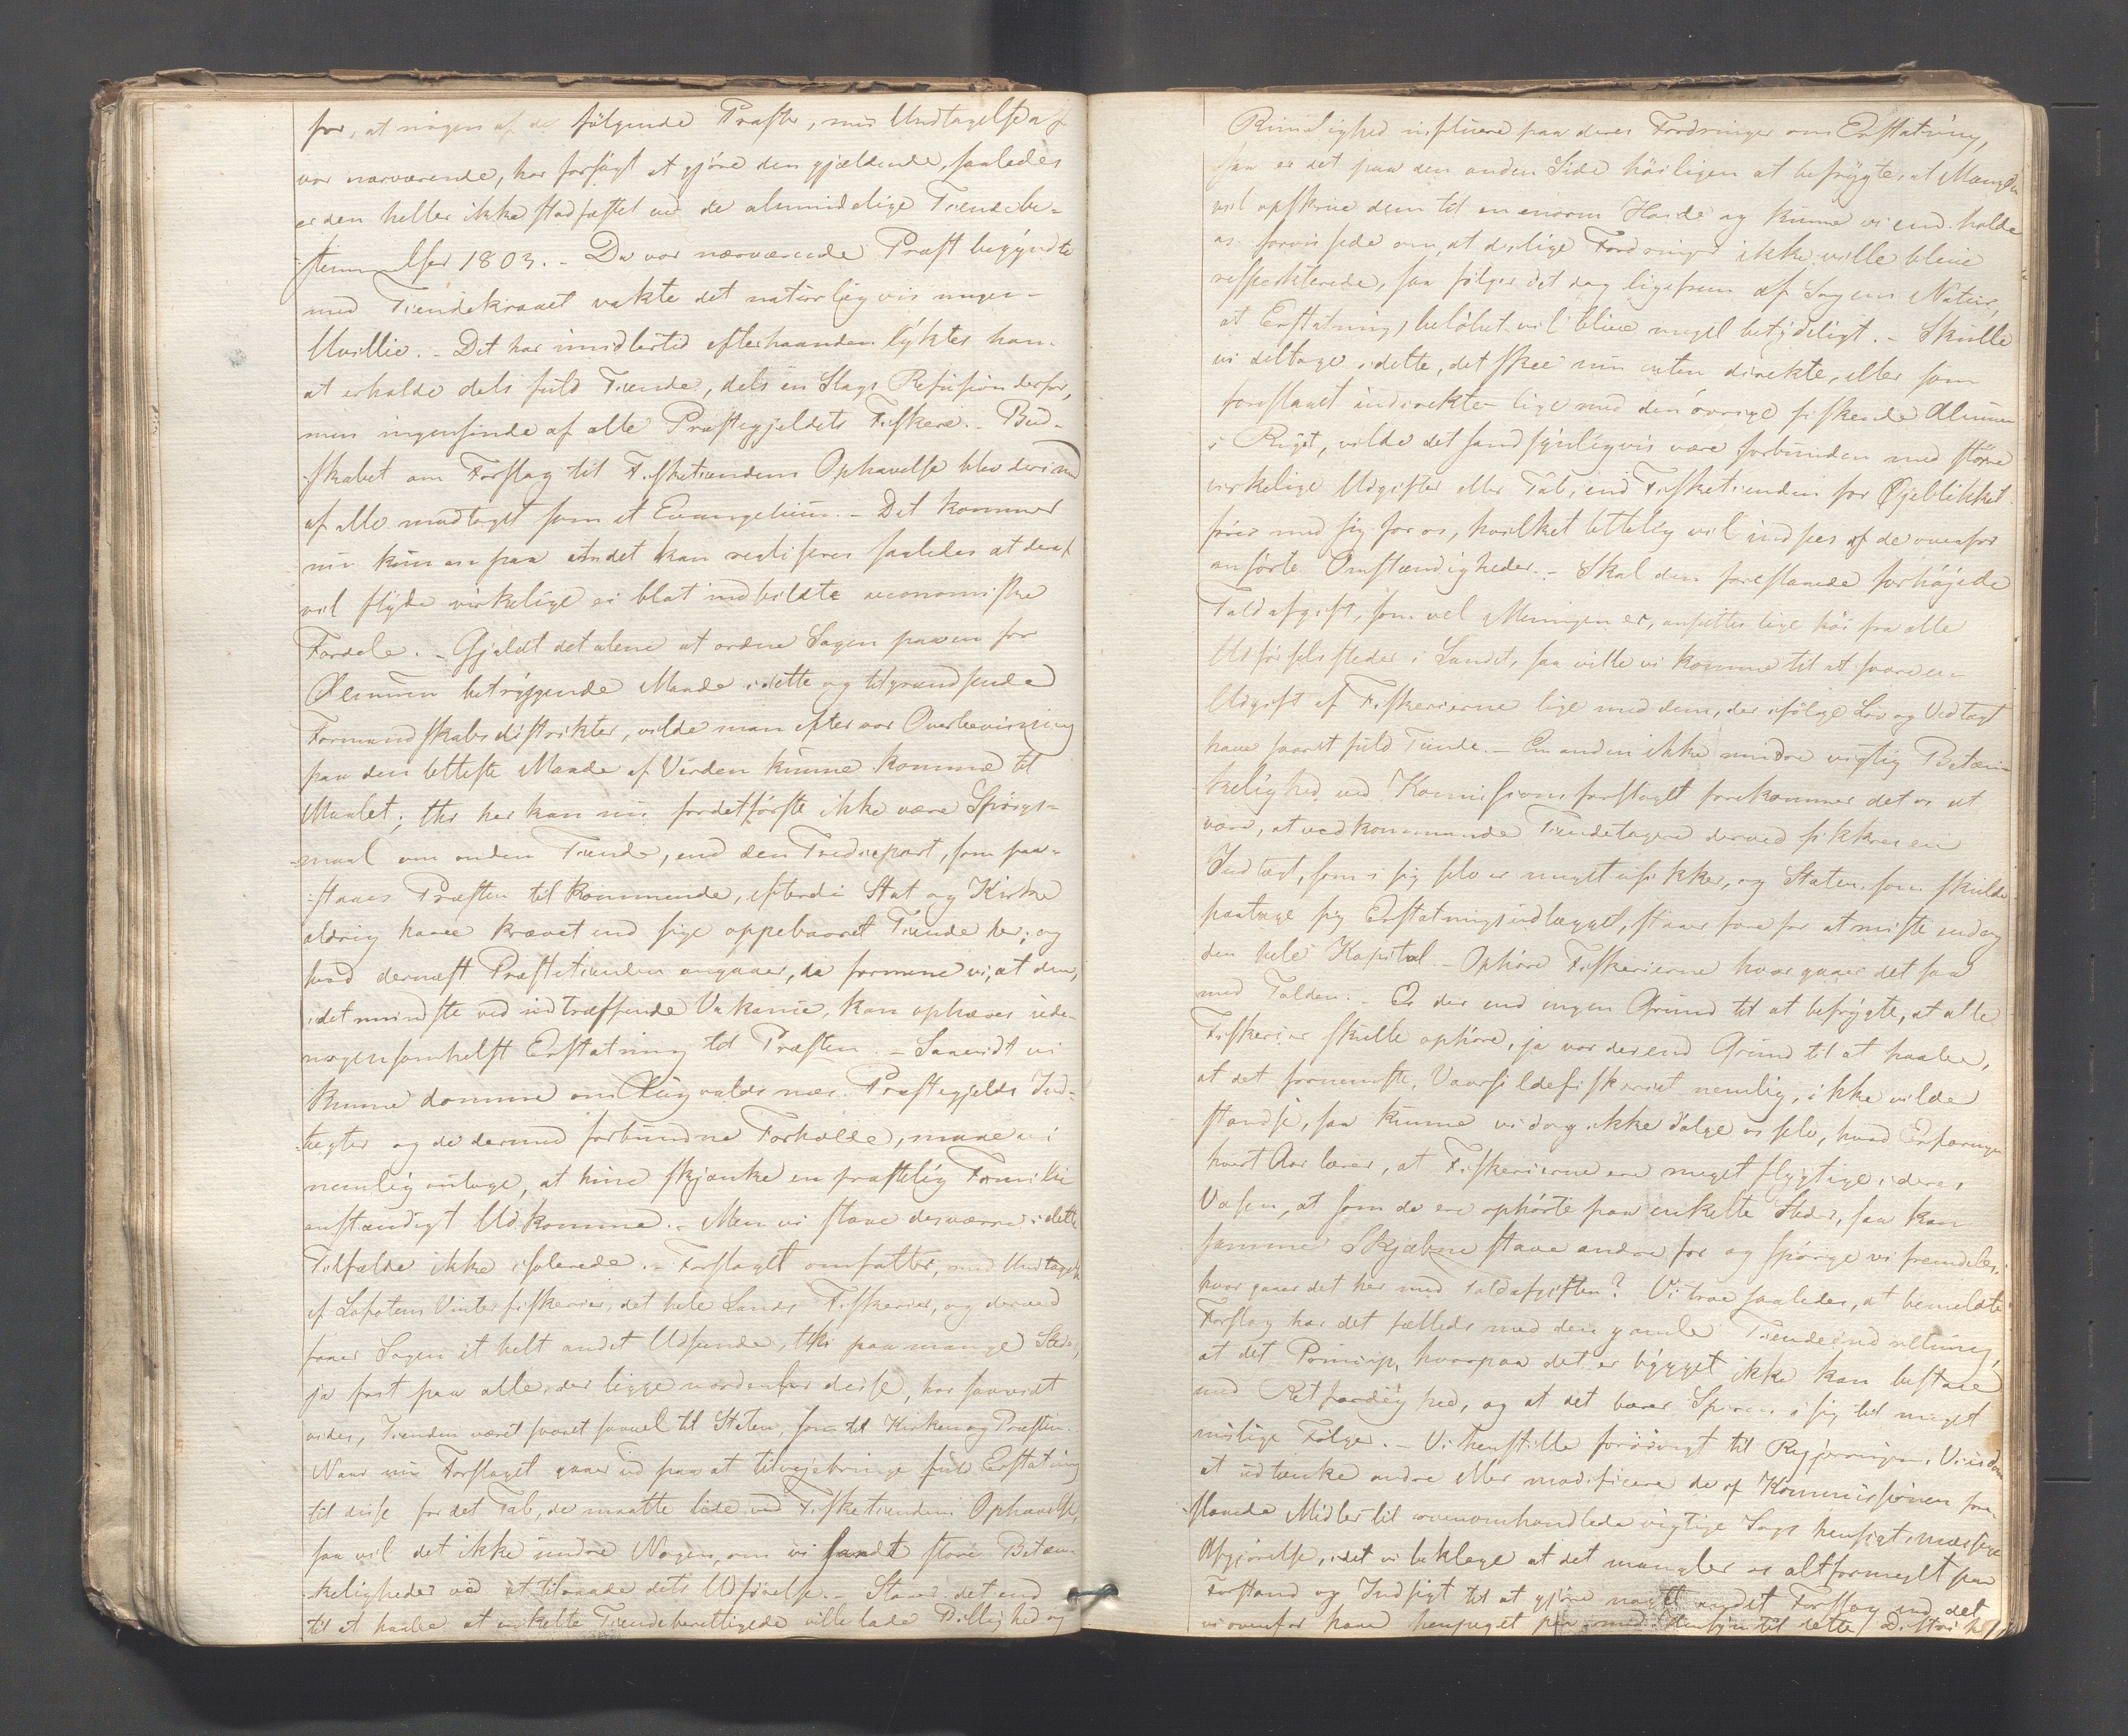 for, at nogen af de følgende Præster, med Undtagelse af
vor nærværende, har forsøgt at gjøre den gjældende, saaledes
er den heller ikke stadfæstet ved de almindelige Tiendebe-
stemmelser 1803. - Da vor nærværende Præst begyndte
med Tiendekravet vakte det naturligvis megen
Uvillie. - Det har imidlertid efterhaanden lyktes ham
at erholde dels fuld Tiende, dels en Slags Refusion derfor,
men ingensinde af alle Præstegjeldets Fiskere. - Bud-
skabet om Forslag til Fisketiendens Ophævelse blev derimod
af alle modtaget som et Evangelium. - Det kommer
nu kun an paa at det kan realiseres saaledes at deraf
vil flyde virkelige ei blot indbildte økonomiske
Fordele. - Gjaldt det alene at ordne Sagen paa en for
Almuen betryggende Maade i dette og tilgrændsende
Formandskabsdistrikter, vilde man efter vor Overbeviisning
paa den letteste Maade af Verden kunne komme til
Maalet; thi her kan nu fordetførste ikke være Spørgs-
maal om anden Tiende, end den Trediepart, som paa-
staaes Præsten tilkommende, efterdi Stat og Kirke
aldrig have krævet end sige oppebaaret Tiende her; og
hvad dernæst Præstetienden angaaer, da formene vi, at den,
idetmindste ved indtræffende Vakance, kan ophæves uden
nogensomhelst Erstatning til Præsten. - Saavidt vi
kunne dømme om Augvaldsnæs Præstegjelds Ind-
tægter og de dermed forbundne Forholde, maae vi
nemlig antage, at hine skjænke en præstelig Familie
anstændigt Udkomme. - Men vi staae desværre i dette
Tilfælde ikke isolerede. - Forslaget omfatter, med Undtagelse
af Lofotens Vinterfiskerier, det hele Lands Fiskerier, og derved
faaer Sagen et helt andet Udseende, thi paa mange Steder,
ja fast paa alle, der ligge nordenfor disse, har saavidt
vides, Tienden været svaret saavel til Staten, som til Kirken og Præsten.
Naar nu Forslaget gaaer ud paa at tilveiebringe fuld Erstatning
til disse for det Tab, de maatte lide ved Fisketiendens Ophævelse,
saa vil det ikke undre Nogen, om vi fandt store Betæn-
keligheder ved at tilraade dets Udførelse. - Staaer det end
til at haabe at enkelte Tiendeberettigede ville lade Billighed og
Rimelighed influere paa deres Fordringer om Erstatning,
saa er det paa den anden Side høiligen at befrygte, at Mængden
vil opskrue dem til en enorm Høide og kunne vi end holde
os forvissede om, at deslige Fordringer ikke ville blive
respekterede, saa følger det dog ligefrem af Sagens Natur,
at Erstatningsbeløbet vil blive meget betydeligt. - Skulle
vi deltage i dette, det skee nu enten direkte, eller som
foreslaaet indirekte lige med den øvrige fiskende Almue
i Riget, vilde det sandsynligvis være forbunden med større
virkelige Udgifter eller Tab, end Fisketienden for Øjeblikket
fører med sig for os, hvilket lettelig vil indsees af de ovenfor
anførte Omstændigheder. - Skal den foreslaaede forhøjede
Toldafgift, som vel Meningen er, ansættes lige høi fra alle
Udførselssteder i Landet, saa ville vi komme til at svare en
Udgift af Fiskerierne lige med dem, der ifølge Lov og Vedtægt
have svaret fuld Tiende. - En anden ikke mindre vigtig Betæn-
kelighed ved Kommissionsforslaget forekommer det os at
være, at vedkommende Tiendetagere derved sikkres en
Indtægt, som i sig selv er meget usikker, og Staten, som skulde
paatage sig Erstatningsudlægget, staaer fare for at miste endog
den hele Kapital. - Ophøre Fiskerierne hvor gaaer det saa
med Tolden. - Er der end ingen Grund til at befrygte, at alle
Fiskerier skulle ophøre, ja var der end Grund til at haabe,
at det fornemste, Vaarsildefiskeriet nemlig, ikke vilde
standse, saa kunne vi dog ikke dølge os selv, hvad Erfaringen
hvert Aar lærer, at Fiskerierne ere meget flygtige i deres
Væsen, at som de ere ophørte paa enkelte Steder, saa kan
samme Skjæbne staae andre for og spørge vi fremdeles:
hvor gaaer det her med Toldafgiften? Vi troe saaledes, at bemeldte
Forslag har det fælleds med den gamle Tiendeindretning,
at det Princip, hvorpaa det er bygget ikke kan bestaae
med Retfærdighed, og at det bærer Spiren i sig til meget
mislige Følger. - Vi henstille forøvrigt til Regjeringens Viisdom
at udtænke andre eller modificere de af Kommissionen fore-
slaaede Midler til ovenomhandlede vigtige Sags hensigtsmæssige
Afgjørelse, idet vi beklage at det mangler os altformeget paa
Forstand og Indsigt til at gjøre noget andet Forslag end det
vi ovenfor have henpeget paa med Hensyn til dette Distrikt